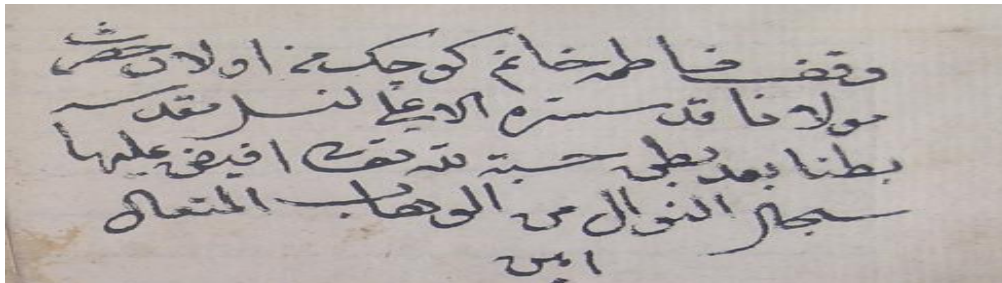 وقف فاطمه خانم كوچك من اولاد حضرت
مولانا قدسسره الاعلى لنسل مقدسه
بطنا بعد بطن حسبة لله تعالى افيض عليها
سجال النوال من الوهاب المتعال
امين